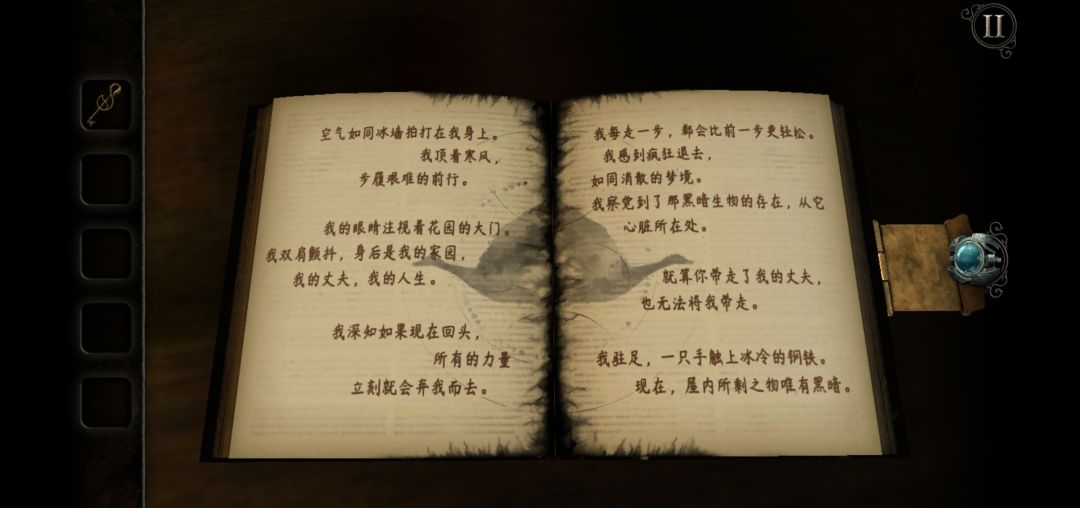 II
空气如同冰墙拍打在我身上。
我顶着寒风，
步履艰难的前行。
我的眼睛注视着花园的大门。
我双肩颤抖，身后是我的家园，
我的丈夫，我的人生。
我深知如果现在回头，
所有的力量
立刻就会弃我而去。
我每走一步，都会比前一步更轻松。
我感到疯狂退去，
如同消散的梦境。
我察觉到了那黑暗生物的存在，从它
心脏所在处。
就算你带走了我的丈夫，
也无法将我带走。
我驻足，一只手触上冰冷的钢铁。
现在，屋内所剩之物唯有黑暗。